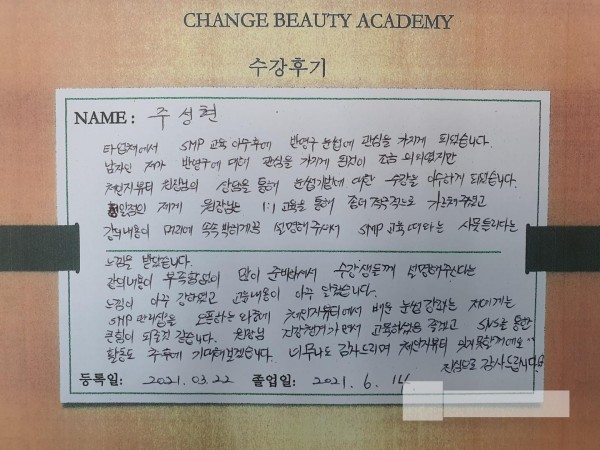 CHANGE BEAUTY ACADEMY
수강후기
NAME : 주성현
타업체에서 SMP 교육 이수후에 반영구 눈썹에 관심을 가지게 되었습니다.
남자인 제가 반영구에 대해 관심을 가지게 된것이 조금 의외였지만
체인지뷰티 원장님의 상담을 통해 눈썹기법에 대한 수강을 이수하게 되었습니다.
제게 원장님은 1:1 교육을 통해 좀더 적극적으로 가르쳐주셨고
강의내용이 머리에 쏙쏙 박히게끔 설명해주셔서 SMP 교육 때와는 사뭇 다르다는
느낌을 받았습니다.
강의내용이 부족함없이 많이 준비하셔서 수강생들께 설명해주신다는
느낌이 아주 강하였고 교육내용이 아주 알찼습니다.
SMP 오픈하는 와중에 체인지뷰티에서 배운 눈썹 강의는 저에게는
큰힘이 되로것 같습니다. 원장님 건강챙겨가면서 교육하셨음 좋겠고 SNS를 통한
활동도 추후에 기대해보겠습니다. 너무나도 감사드리며 체인지뷰티 잊지못할거에요^^
진심으로 감사드립니다
등록일: 2021.03.22 졸업일: 2021. 6. 14